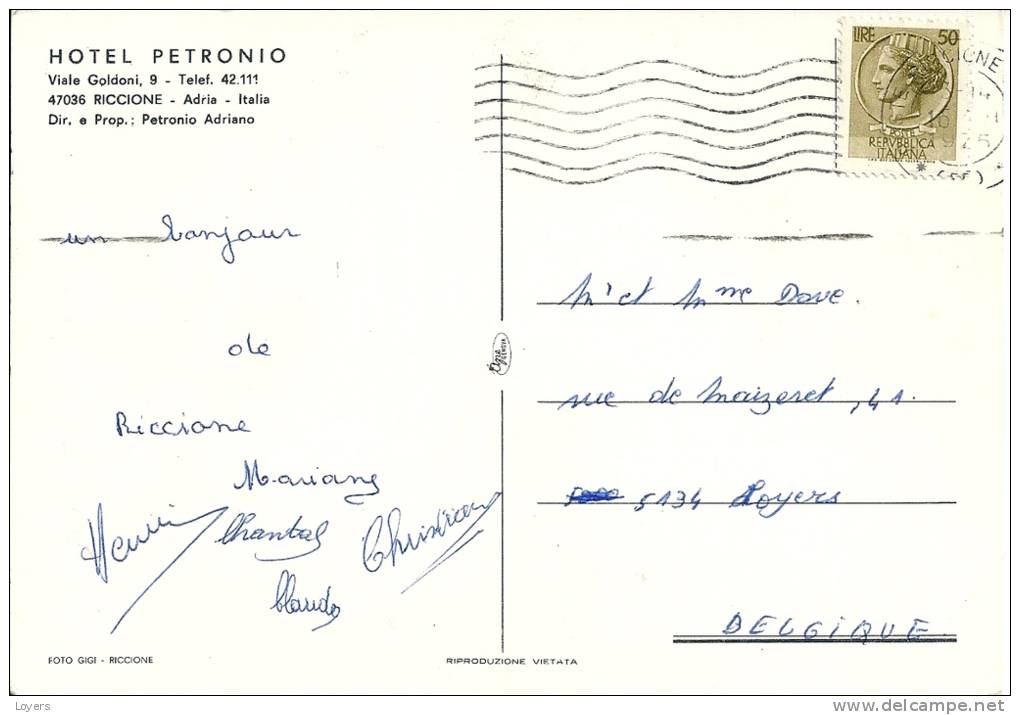 HOTEL PETRONIO
Viale Goldoni, 9 - Telef. 42.111
47036 RICCIONE - Adria - Italia
Dir. e Prop.: Petronio Adriano
LIRE 50
POSTE
REPVBBLICA
ITALIANA
un bonjour
de
Riccione
Mariane
Henri
Chantal
Christian
Claude
Mr et Mme Dave.
rue de Maizeret, 41.
5134 Loyers
BELGIQUE.
FOTO GIGI - RICCIONE
RIPRODUZIONE VIETATA
Loyers
delcampe.net